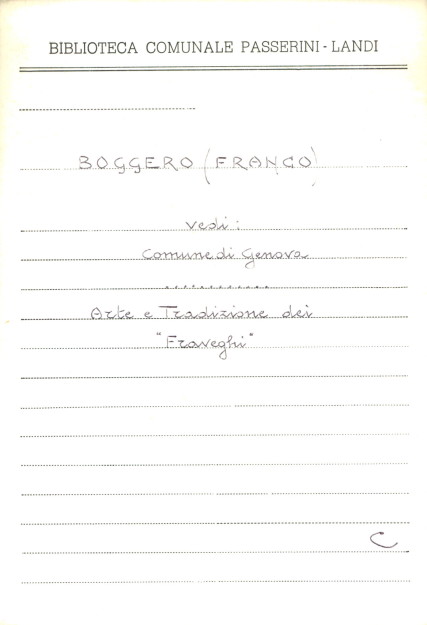 BIBLIOTECA COMUNALE PASSERINI-LANDI
BOGGERO (FRANCO)
vedi:
Comune di Genova
............
Arte e Tradizione dei
"Fraveghi"
C